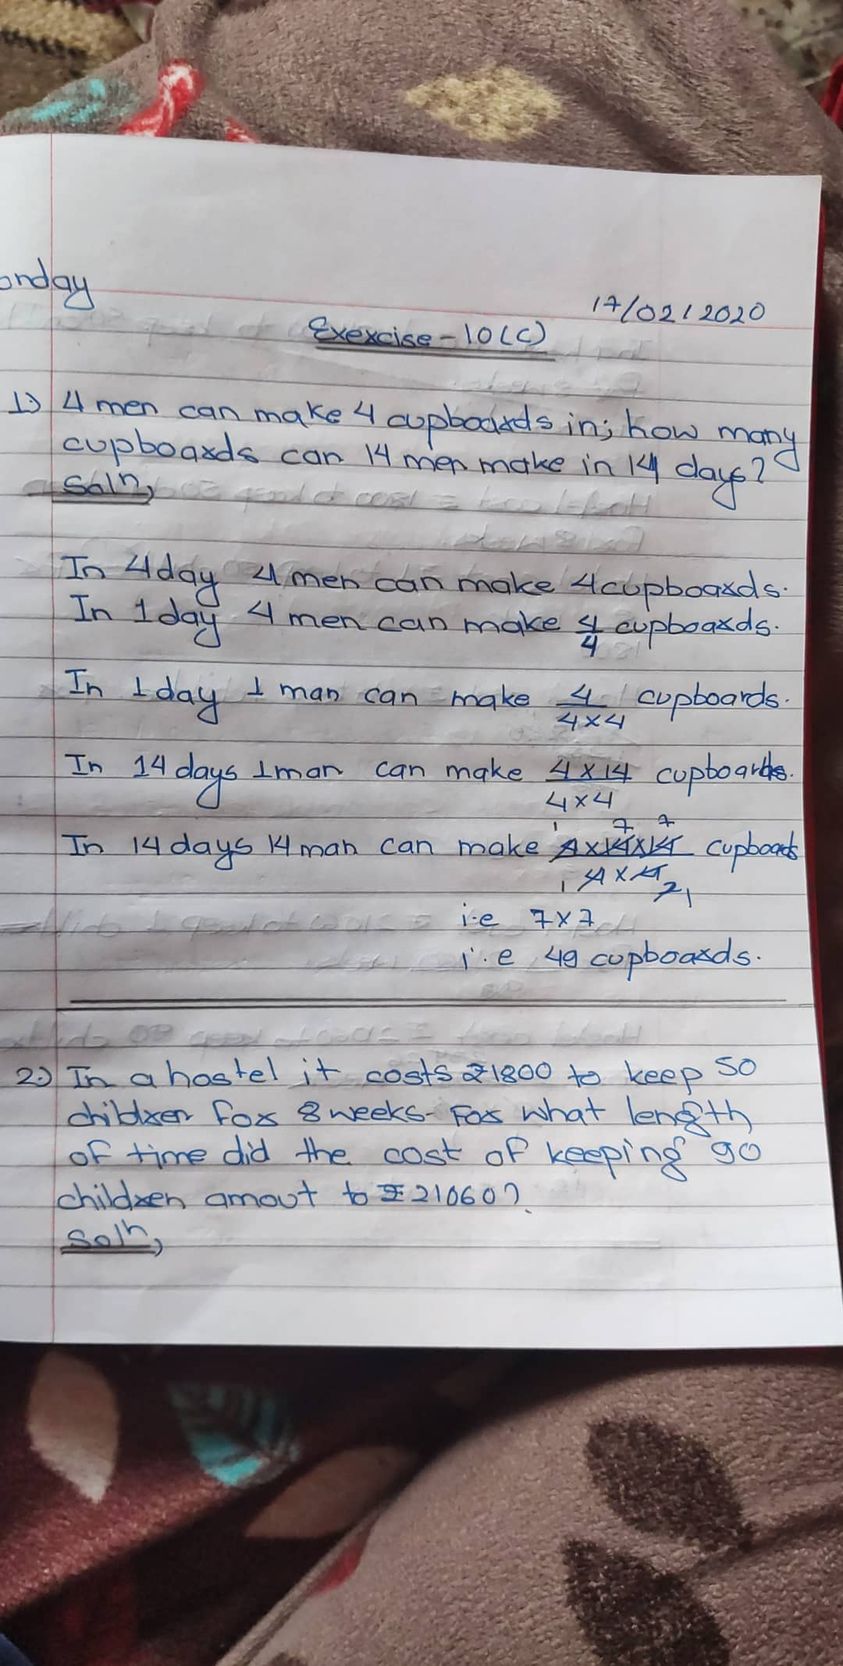 onday
17/02/2020
Exercise-10(C)
1) 4 men can make 4 cupboards in; how many
cupboards can 14 men make in 14 days?
Soln,
In 4day 4 men can make 4cupboards.
In 1day 4 men can make 4/4 cupboards.
In 1day 1 man can make 4/4×4 cupboards.
In 14days 1man can make 4×14/4×4 cupboards.
In 14days 14man can make 4×14×14/4×4 cupboards
i.e 7×7
i.e 49 cupboards.
2.) In a hostel it costs ₹1800 to keep 50
children for 8weeks. For what length
of time did the cost of keeping 90
children amout to ₹21060?
Soln,